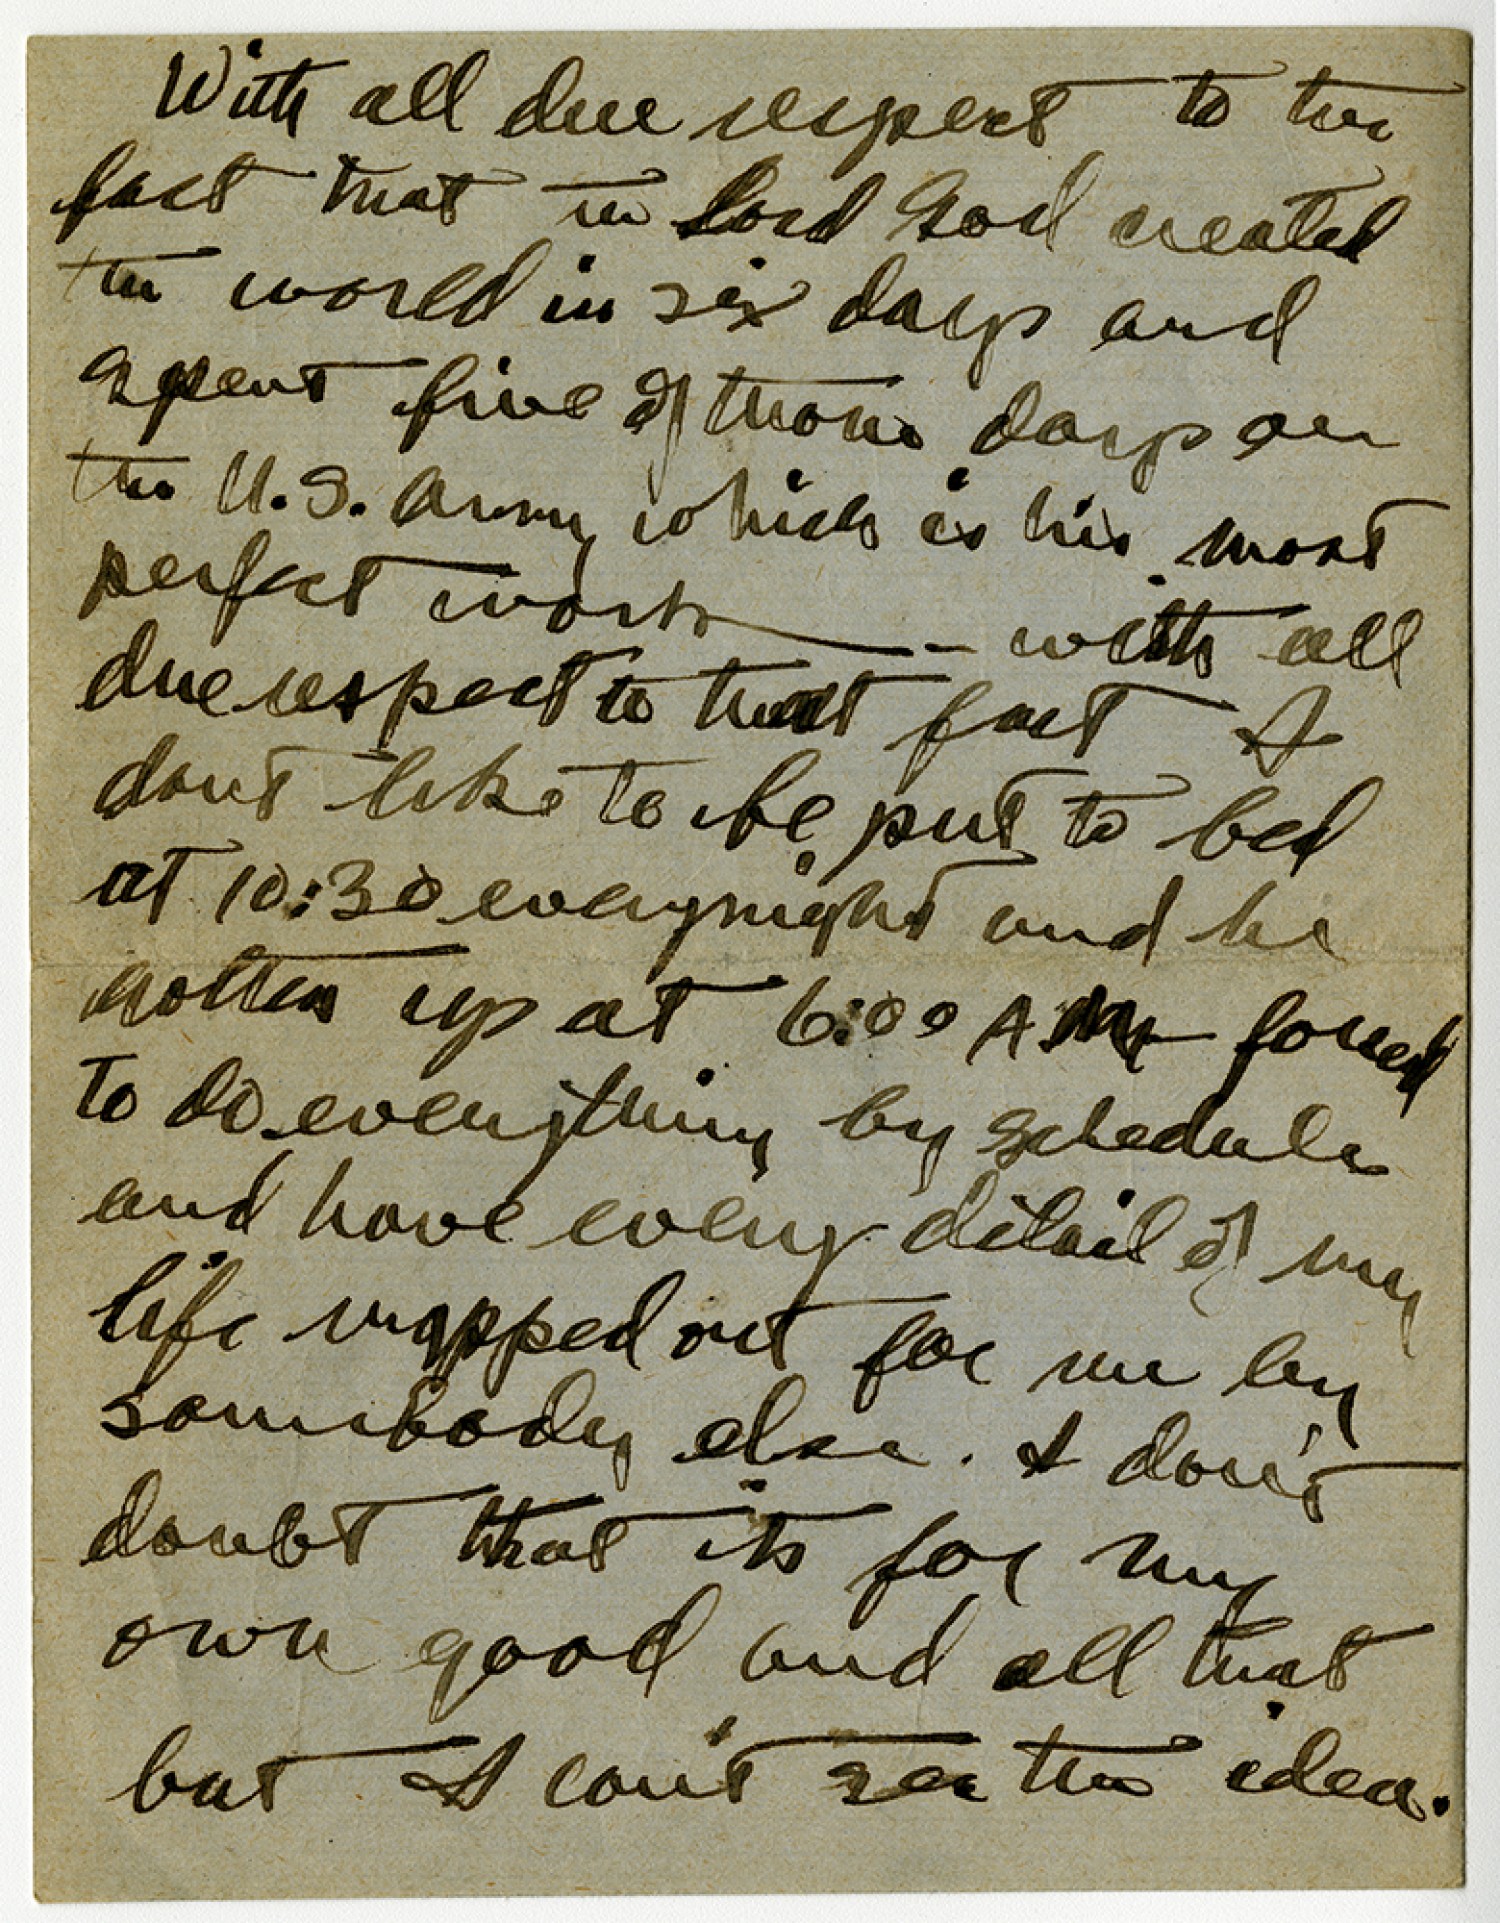 With all due respect to the
fact that the Lord God created
the world in six days and
spent five of those days on
the U.S. Army which is his most
perfect work — with all
due respect to that fact I
dont like to be put to bed
at 10:30 every night and be
gotten up at 6:00 A.M. forced
to do everything by schedule
and have every detail of my
life mapped out for me by
somebody else. I don't
doubt that its for my
own good and all that
but I can't see the idea.